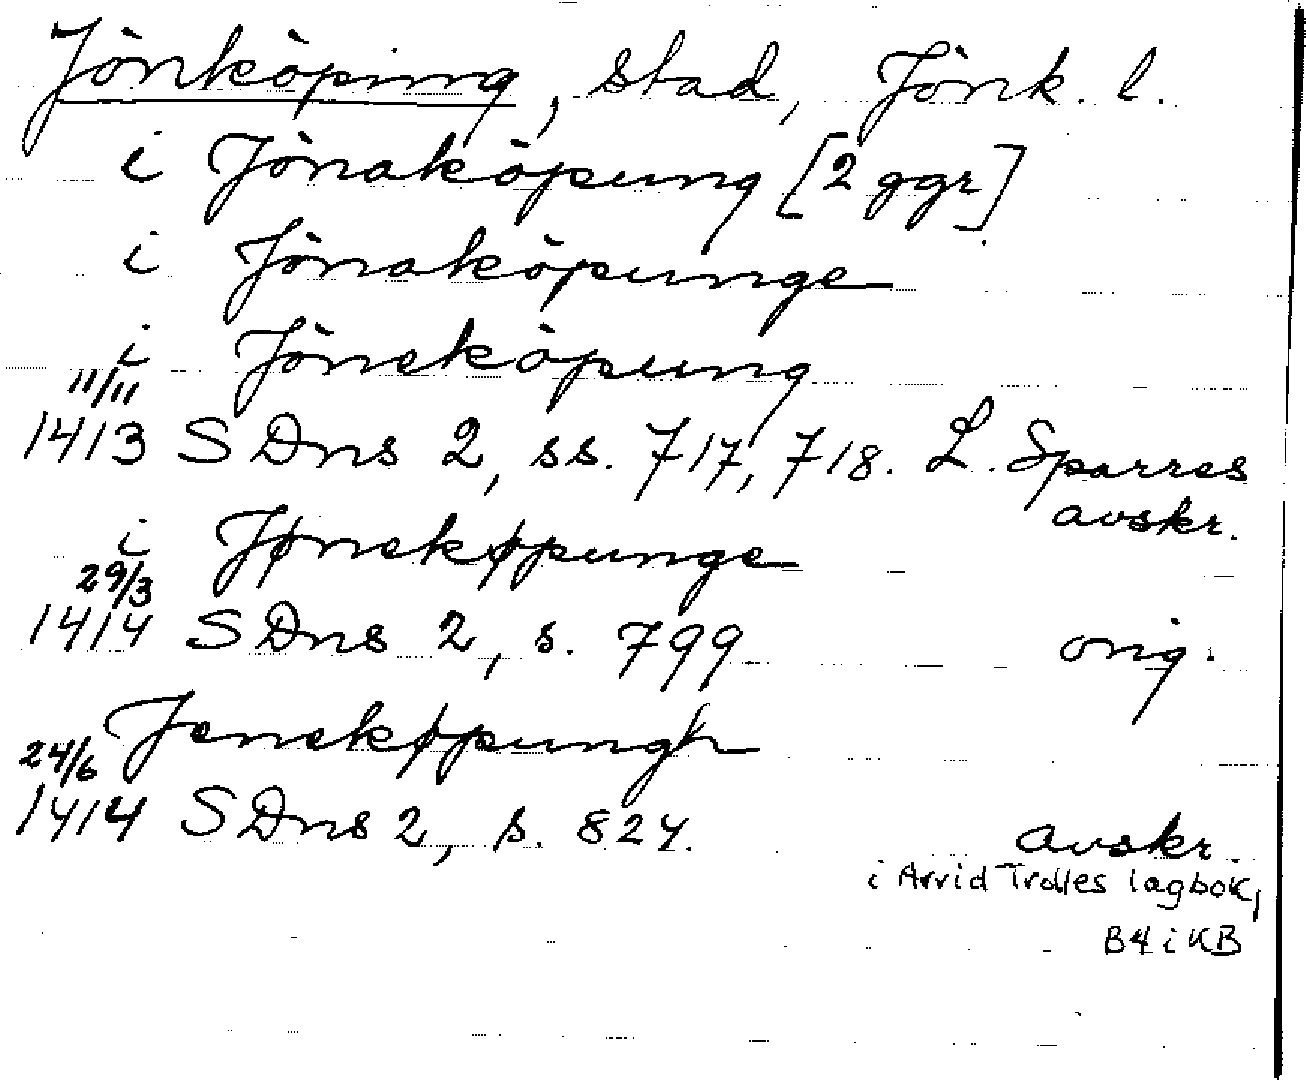 Jönköping, stad, Jönk. l.
i Jönaköpung [2 ggr]
i Jönaköpunge
i Jöneköpung
11/11
1413 SDns 2, ss. 717, 718. L. Sparres
avskr.
i Jønekøpunge
29/3
1414 SDns 2, s. 799 orig.
Jenekøpungh
24/6
1414 SDns 2, s. 824. avskr.
i Arvid Trolles lagbok,
B4 i KB